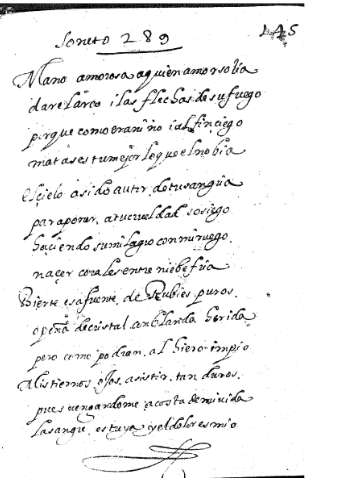 Soneto 289
145
Mano amorosa a quien amor solia
dar el arco i las flechas de su fuego
porque como era niño i al fin ciego
matases tu mejor lo que el no bia
el cielo a sido autor de tu sangria
para poner a tu crueldad sosiego
haciendo su milagro con mi ruego
naçer corales entre niebe fria
Vierte esa fuente de Rubies puros
o peña de cristal anblanda herida
pero como podran al hiero impio
Mis tiernos ojos asistir tan duros
pues vengandome a costa de mi vida
la sangre es tuya i el dolor es mio